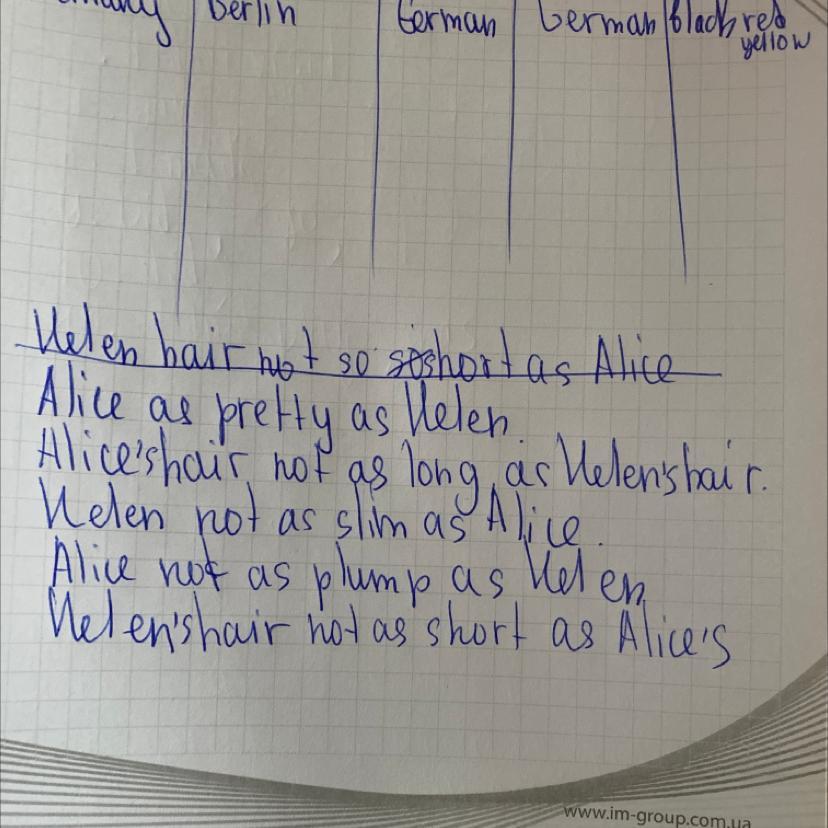 Berlin German German black red
yellow
Helen hair not so short as Alice
Alice as pretty as Helen.
Alice's hair not as long as Helen's hair.
Helen not as slim as Alice.
Alice not as plump as Helen
Helen's hair not as short as Alice's
www.im-group.com.ua